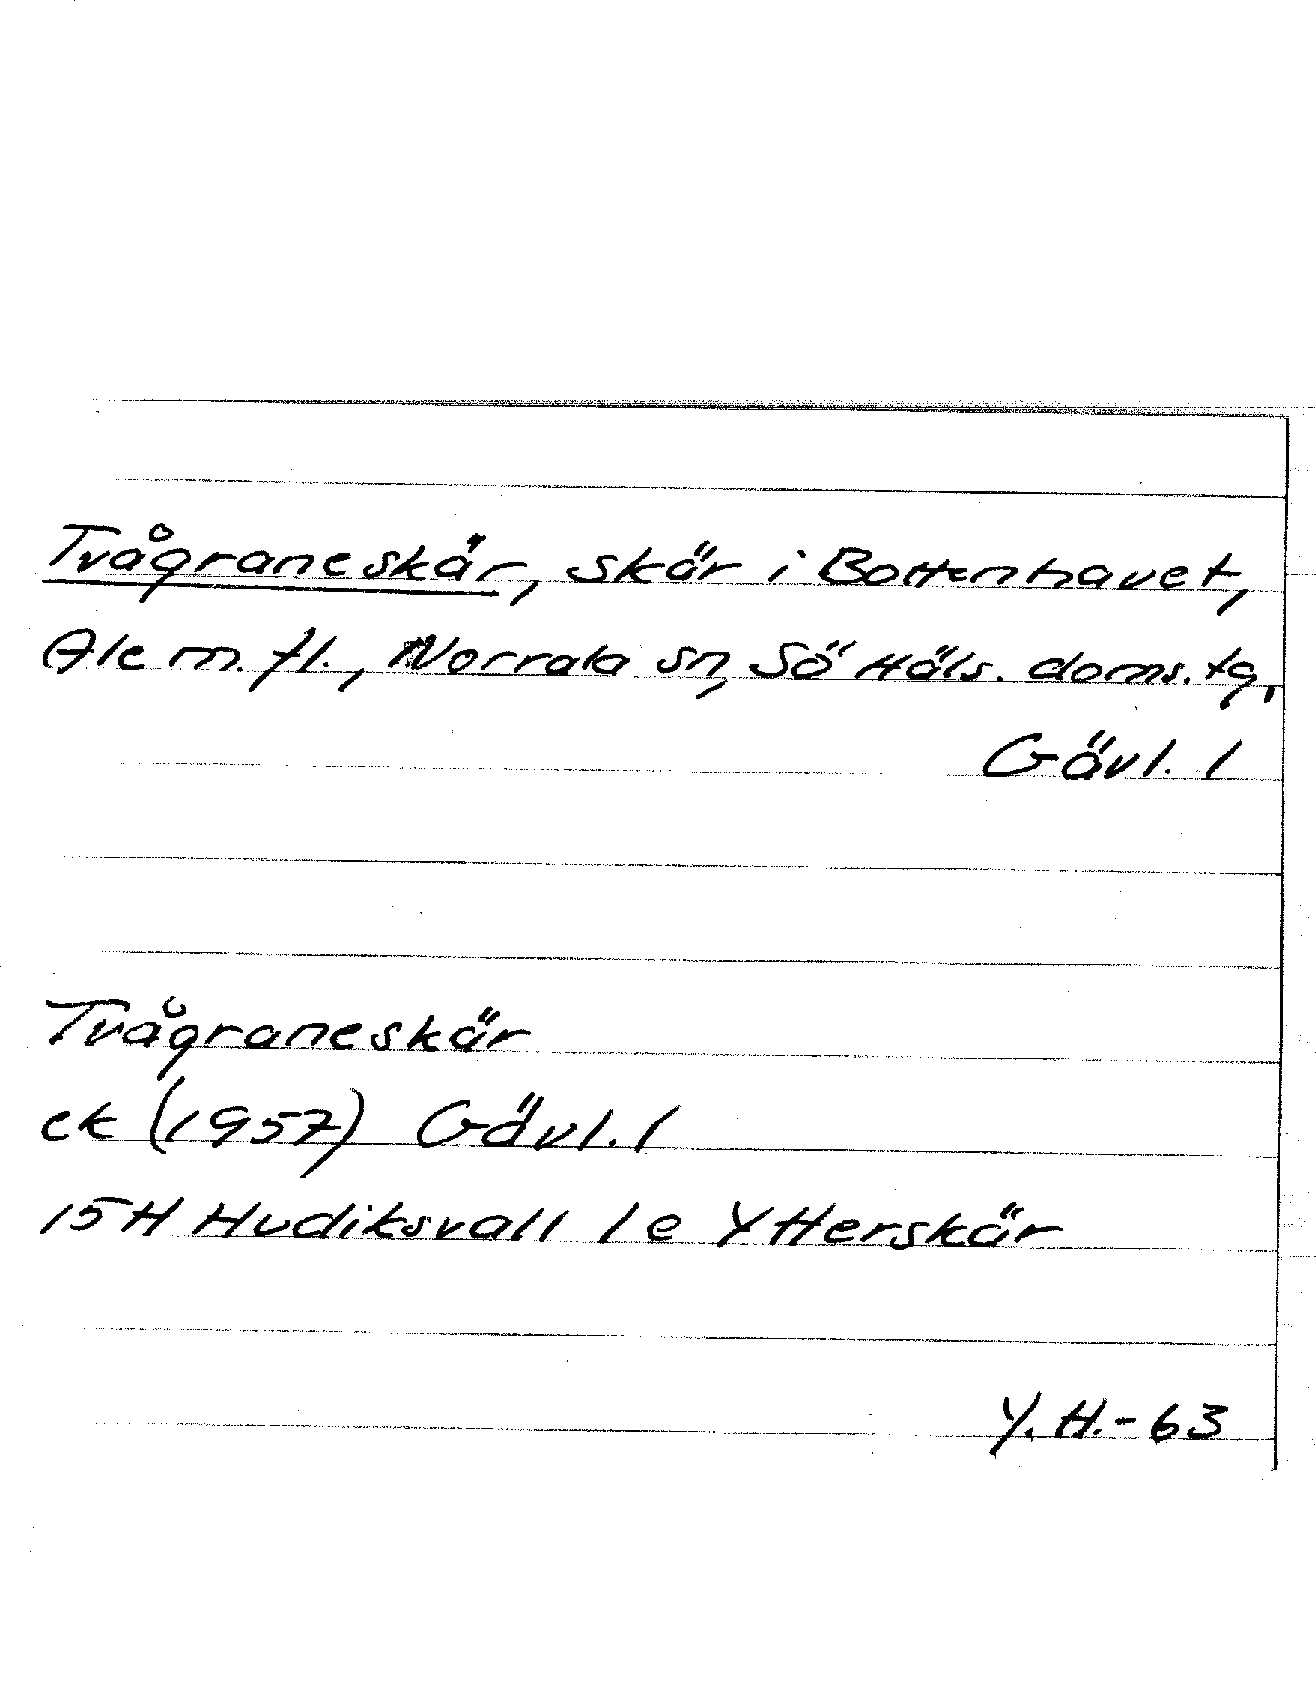 Tvågraneskär, skär i Bottenhavet,
Ale m. fl., Norrala sn, Sö Häls. doms. tg,
Gävl. l
Tvågraneskär
ek (1957) Gävl. l
15H Hudiksvall 1e Ytterskär
Y. H. - 63